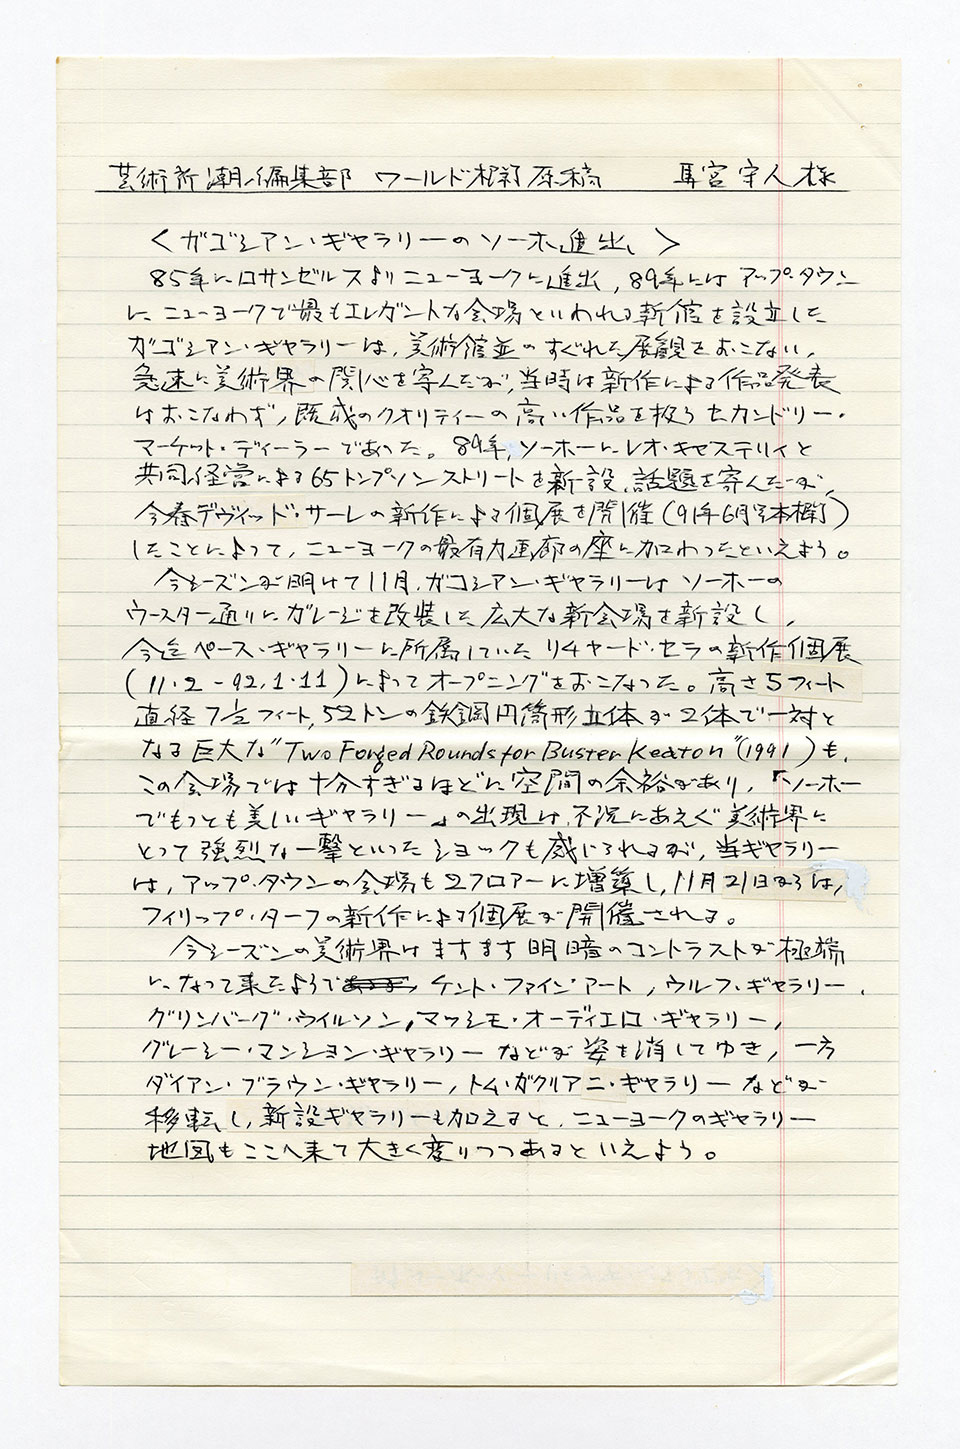 芸術新潮編集部 ワールド欄原稿 馬宮守人様
〈ガゴシアン・ギャラリーのソーホ進出〉
85年にロサンゼルスよりニューヨークに進出，89年にはアップ・タウン
にニューヨークで最もエレガントな会場といわれる新館を設立した
ガゴシアン・ギャラリーは，美術館並のすぐれた展観をおこない，
急速に美術界の関心を寄んだが，当時は新作による作品発表
はおこなわず，既成のクオリティーの高い作品を扱うセカンドリー・
マーケット・ディーラーであった。89年，ソーホーにレオ・キャステリィと
共同経営による65トンプソンストリートを新設，話題を寄んだが，
今春デヴィッド・サーレの新作による個展を開催（91年6月号本欄）
したことによって，ニューヨークの最有力画廊の座に加わったといえよう。
今シーズンが明けて11月，ガコシアン・ギャラリーはソーホーの
ウースター通りにガレージを改装した広大な新会場を新設し，
今迄ペース・ギャラリーに所属していたリチャード・セラの新作個展
（11・2－92.1・11）によってオープニングをおこなった。高さ5フィート
直径7½フィート，52トンの鉄鋼円筒形立体が2体で一対と
なる巨大な"Two Forged Rounds for Buster Keaton"（1991）も，
この会場では十分すぎるほどに空間の余裕があり，「ソーホー
でもっとも美しいギャラリー」の出現は，不況にあえぐ美術界に
とって強烈な一撃といったショックも感じられるが，当ギャラリー
は，アップ・タウンの会場も2フロアーに増築し，11月21日からは，
フィリップ・ターフの新作による個展が開催される。
今シーズンの美術界はますます明暗のコントラストが極端
になって来たようで，ケント・ファイン・アート，ウルフ・ギャラリー，
グリンバーグ・ウイルソン，マッシモ・オーディエロ・ギャラリー，
グレーシー・マンション・ギャラリーなどが姿を消してゆき，一方
ダイアン・ブラウン・ギャラリー，トム・ガクリアニ・ギャラリーなどが
移転し，新設ギャラリーも加えると，ニューヨークのギャラリー
地図もここへ来て大きく変りつつあるといえよう。